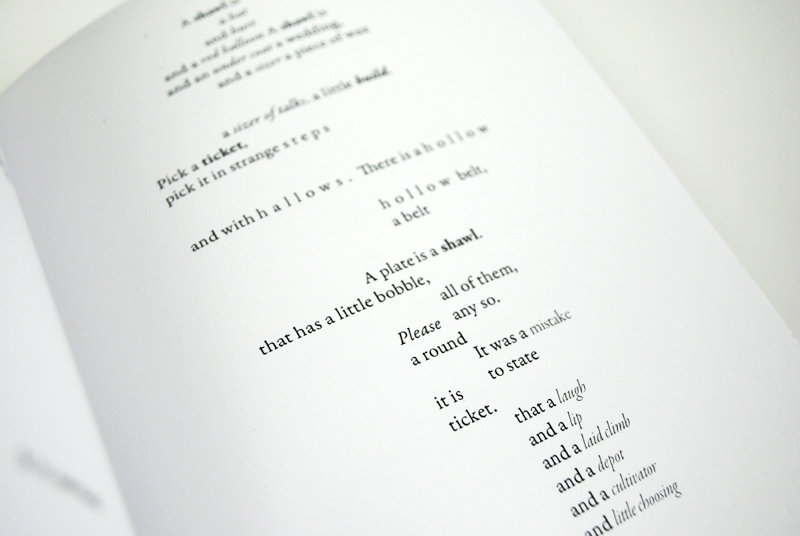 A shawl is
a hat
and hurt
and a red balloon A shawl is
and an under coat a wedding,
and a sizer a piece of wax
a sizer of talks. a little build.
Pick a ticket,
pick it in strange s t e p s
and with h a l l o w s . There is a h o l l o w
h o l l o w belt,
a belt
A plate is a shawl.
that has a little bobble,
all of them,
Please any so.
a round
It was a mistake
to state
it is
ticket.
that a laugh
and a lip
and a laid climb
and a depot
and a cultivator
and little choosing